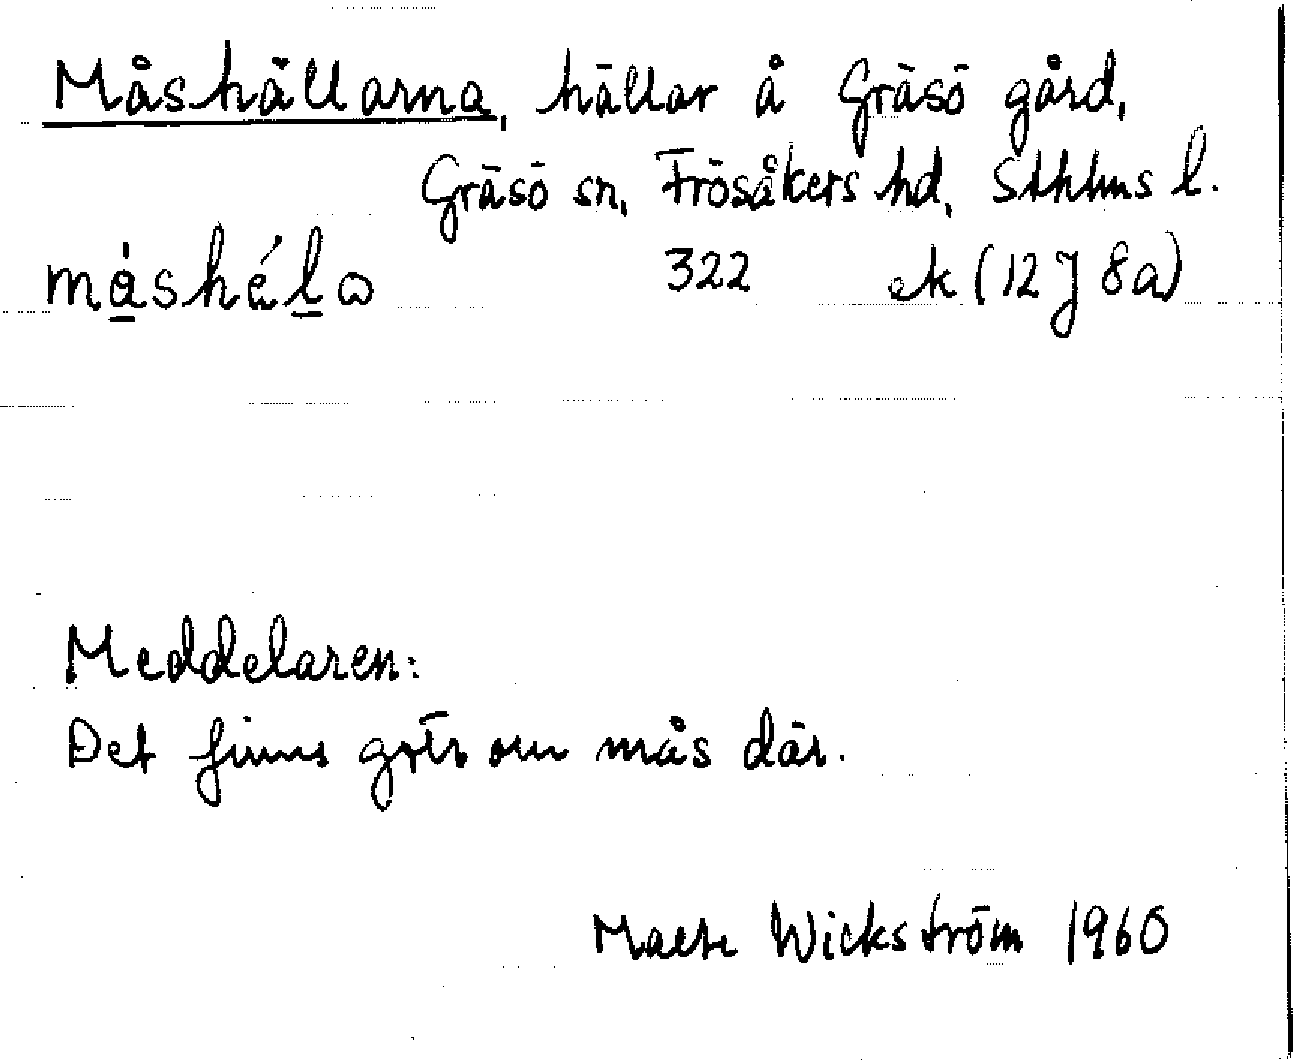 Måshällarna, hällar å Gräsö gård,
Gräsö sn, Frösåkers hd, Sthlms l.
måshéla 322 ek (12 J 8a)
Meddelaren:
Det finns gött om mås där.
Malte Wickström 1960